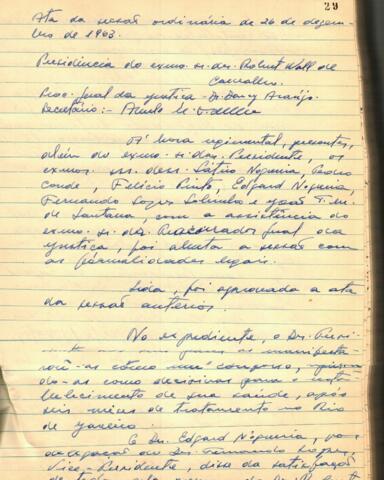 29
Ata da sessão ordinária de 26 de dezem-
bro de 1963.
Presidencia do exmo. sr. des. Robert Wall de
Carvalho.
Proc. geral da justiça - Dr. Darcy Araújo.
Secretário: -
Á hora regimental, presentes,
além do exmo. sr. des. Presidente, os
exmos. srs. dess. Sátiro Nogueira, Pedro
Conde, Felício Pinto, Edgard Nogueira,
Fernando Lopes Sobrinho e João T. M.
de Santana, com a assistência do
exmo. sr. dr. Procurador Geral da
justiça, foi aberta a sessão com
as formalidades legais.
Lida, foi aprovada a ata
da sessão anterior.
No expediente, o Des. Presi-
manifesta
as como
do-as como decisivas para o
belecimento de sua saúde, após
seis mêses de tratamento no Rio
de Janeiro.
O Des. Edgard Nogueira, por
do Des. Fernando Lopes,
Vice-Presidente, disse da satisfação